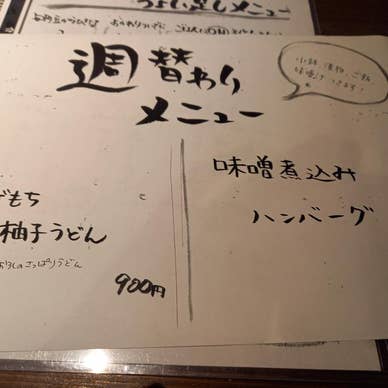 ちょい足しメニュー
週替わり
メニュー
小鉢、漬物、ご飯
味噌汁つきます！
げもち
柚子うどん
さっぱりうどん
900円
味噌煮込み
ハンバーグ